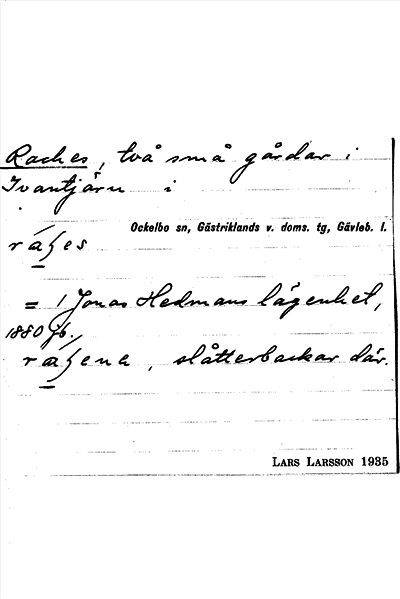 Raches, två små gårdar i
Ivantjärn i
Ockelbo sn, Gästriklands v. doms. tg, Gävleb. l.
= 1 Jonas Hedmans lägenhet,
1880 jb.,
slåtterbackar där.
LARS LARSSON 1935